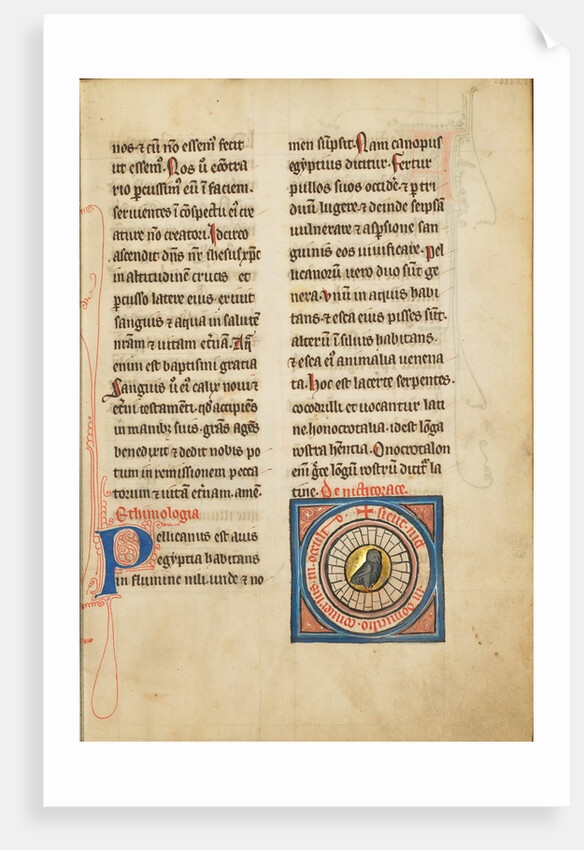 nos· ⁊ cū nō essem⁹ fecit
ut essem⁹. Nos ū ecōtra
rio ꝑcussim⁹ eū ī faciem·
seruientes ī cōspectu ei⁹ cre
ature nō creatori. Idcirco
ascendit dn̄s nr̄ ihesusxp̄c
in altitudinem crucis et
ꝑcusso latere eius· exiuit
sanguis ⁊ aqua in salutē
nr̄am ⁊ uitam et̄nam. Aq̄
enim est baptismi gratia
Sanguis ū ei⁹ calix noui ⁊
et̄ni testamēti· qd̄ accipiēs
in manibꝫ suis· gr̄as agēs
benedixit ⁊ dedit nobis po
tum in remissionem pecca
torum ⁊ uitā et̄nam· amē·
Ethimologia
Pellicanus est auis
egyptia habitans
in flumine nili· unde ⁊ no
men sūpsit. Nam canopus
egyptius dicitur. Fertur
pullos suos occidē· ⁊ ꝑ tri
duū lugere· ⁊ deinde seipsā
uulnerare ⁊ asꝑsione san
guinis eos uiuificare. Pel
licanorū uero duo sūt ge
nera. Vnū in aquis habi
tans· ⁊ esca eius pisses sūt·
alterū ī siluis habitans·
⁊ esca ei⁹ animalia uenena
ta. Hoc est lacerte serpentes·
cocodrilli et uocantur lati
ne honocrotalia· idest lōga
rostra hn̄cia. Onocrotalon
enī grece lōgū rostrū dicit̄ la
tine· De nicticorace·
✠ sicut· nict in domicilio· conuersus· in occult o·